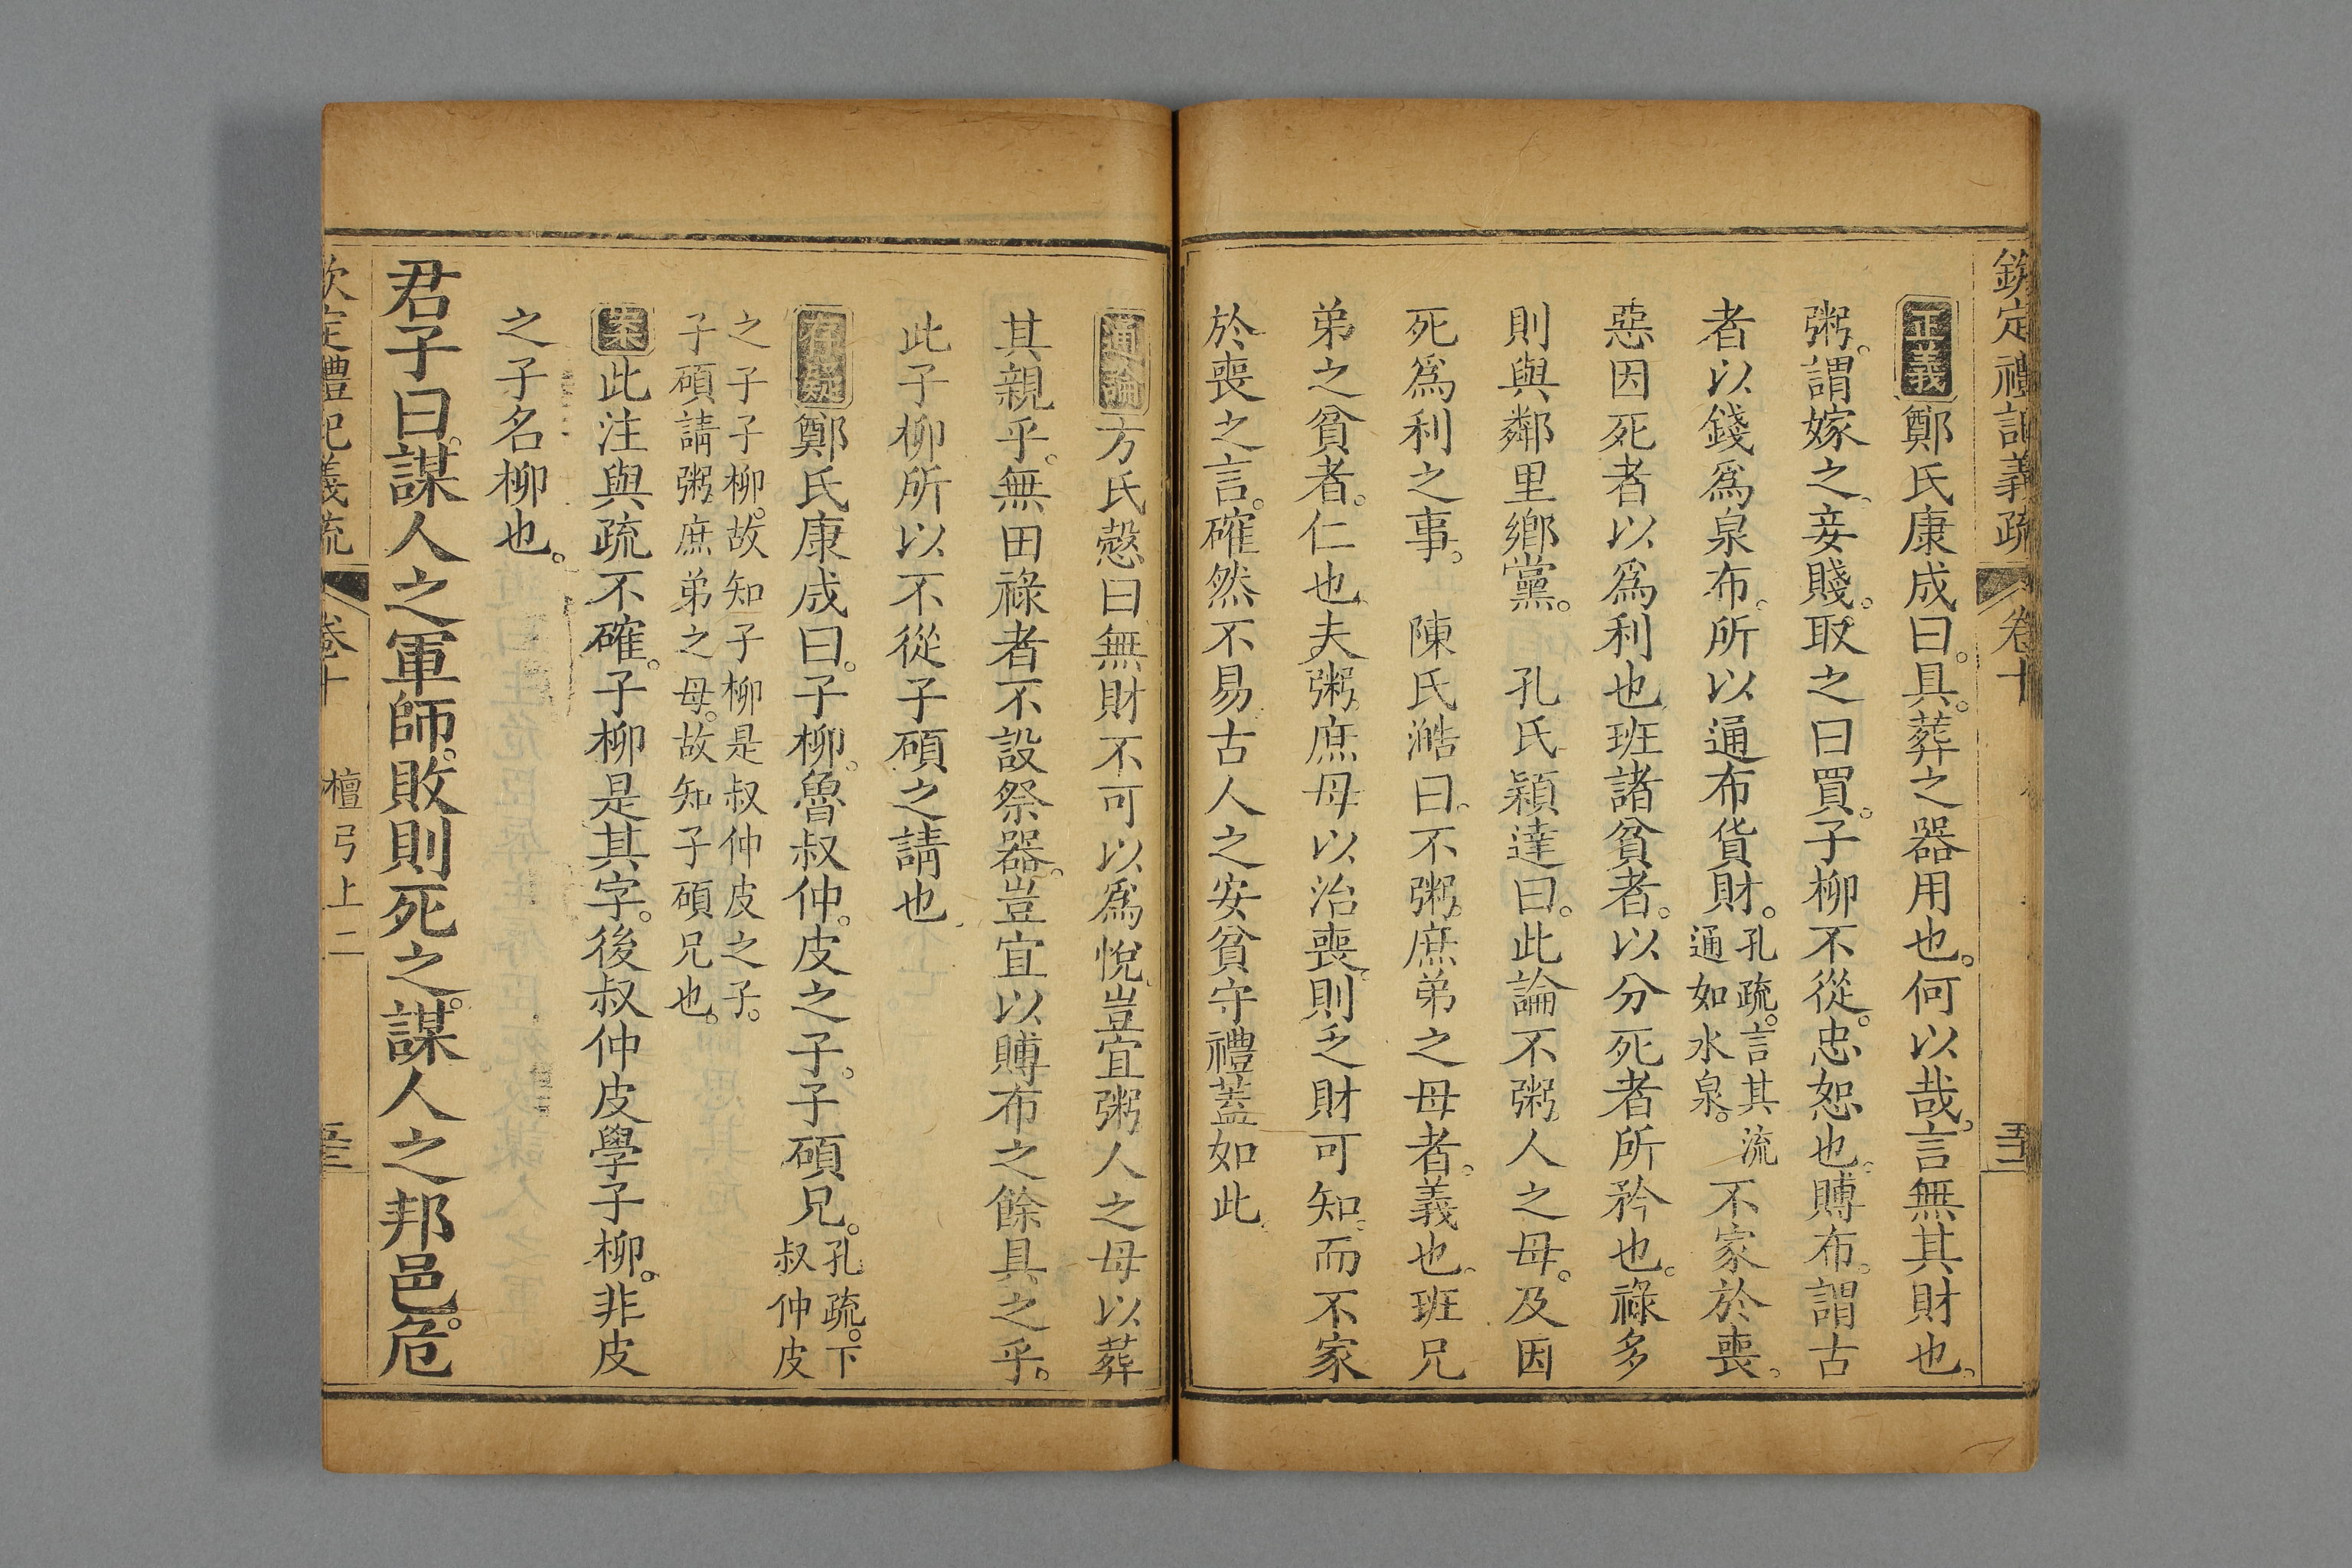 欽定禮記義疏 卷十
正義鄭氏康成曰。具。葬之器用也。何以哉。言無其財也。
粥。謂嫁之、妾賤。取之曰買。子柳不從。忠恕也。賻布。謂古
者以錢爲泉布。所以通布貨財。孔疏。言其流通如水泉。不家於喪。
惡因死者以爲利也班諸貧者。以分死者所矜也。祿多
則與鄰里鄉黨。 孔氏穎達曰。此論不粥人之母。及因
死爲利之事。 陳氏澔曰。不粥。庶弟之母者。義也。班兄
弟之貧者。仁也。夫粥庶母以治喪。則乏財可知。而不家
於喪之言。確然不易古人之安貧守禮蓋如此
通論方氏慤曰無財不可以爲悅豈宜粥人之母以葬
其親乎。無田祿者不設祭器。豈宜以賻布之餘具之乎。
此子柳所以不從子碩之請也
存疑鄭氏康成曰。子柳。魯叔仲。皮之子。子碩兄。孔疏。下叔仲皮
之子子柳。故知子柳是叔仲皮之子。
子碩請粥庶弟之母。故知子碩兄也。
案此注與疏不確。子柳是其字。後叔仲皮學子柳。非皮
之子名柳也。
君子曰。謀人之軍師。敗則死之。謀人之邦邑。危
欽定禮記義疏 卷十 檀弓上二